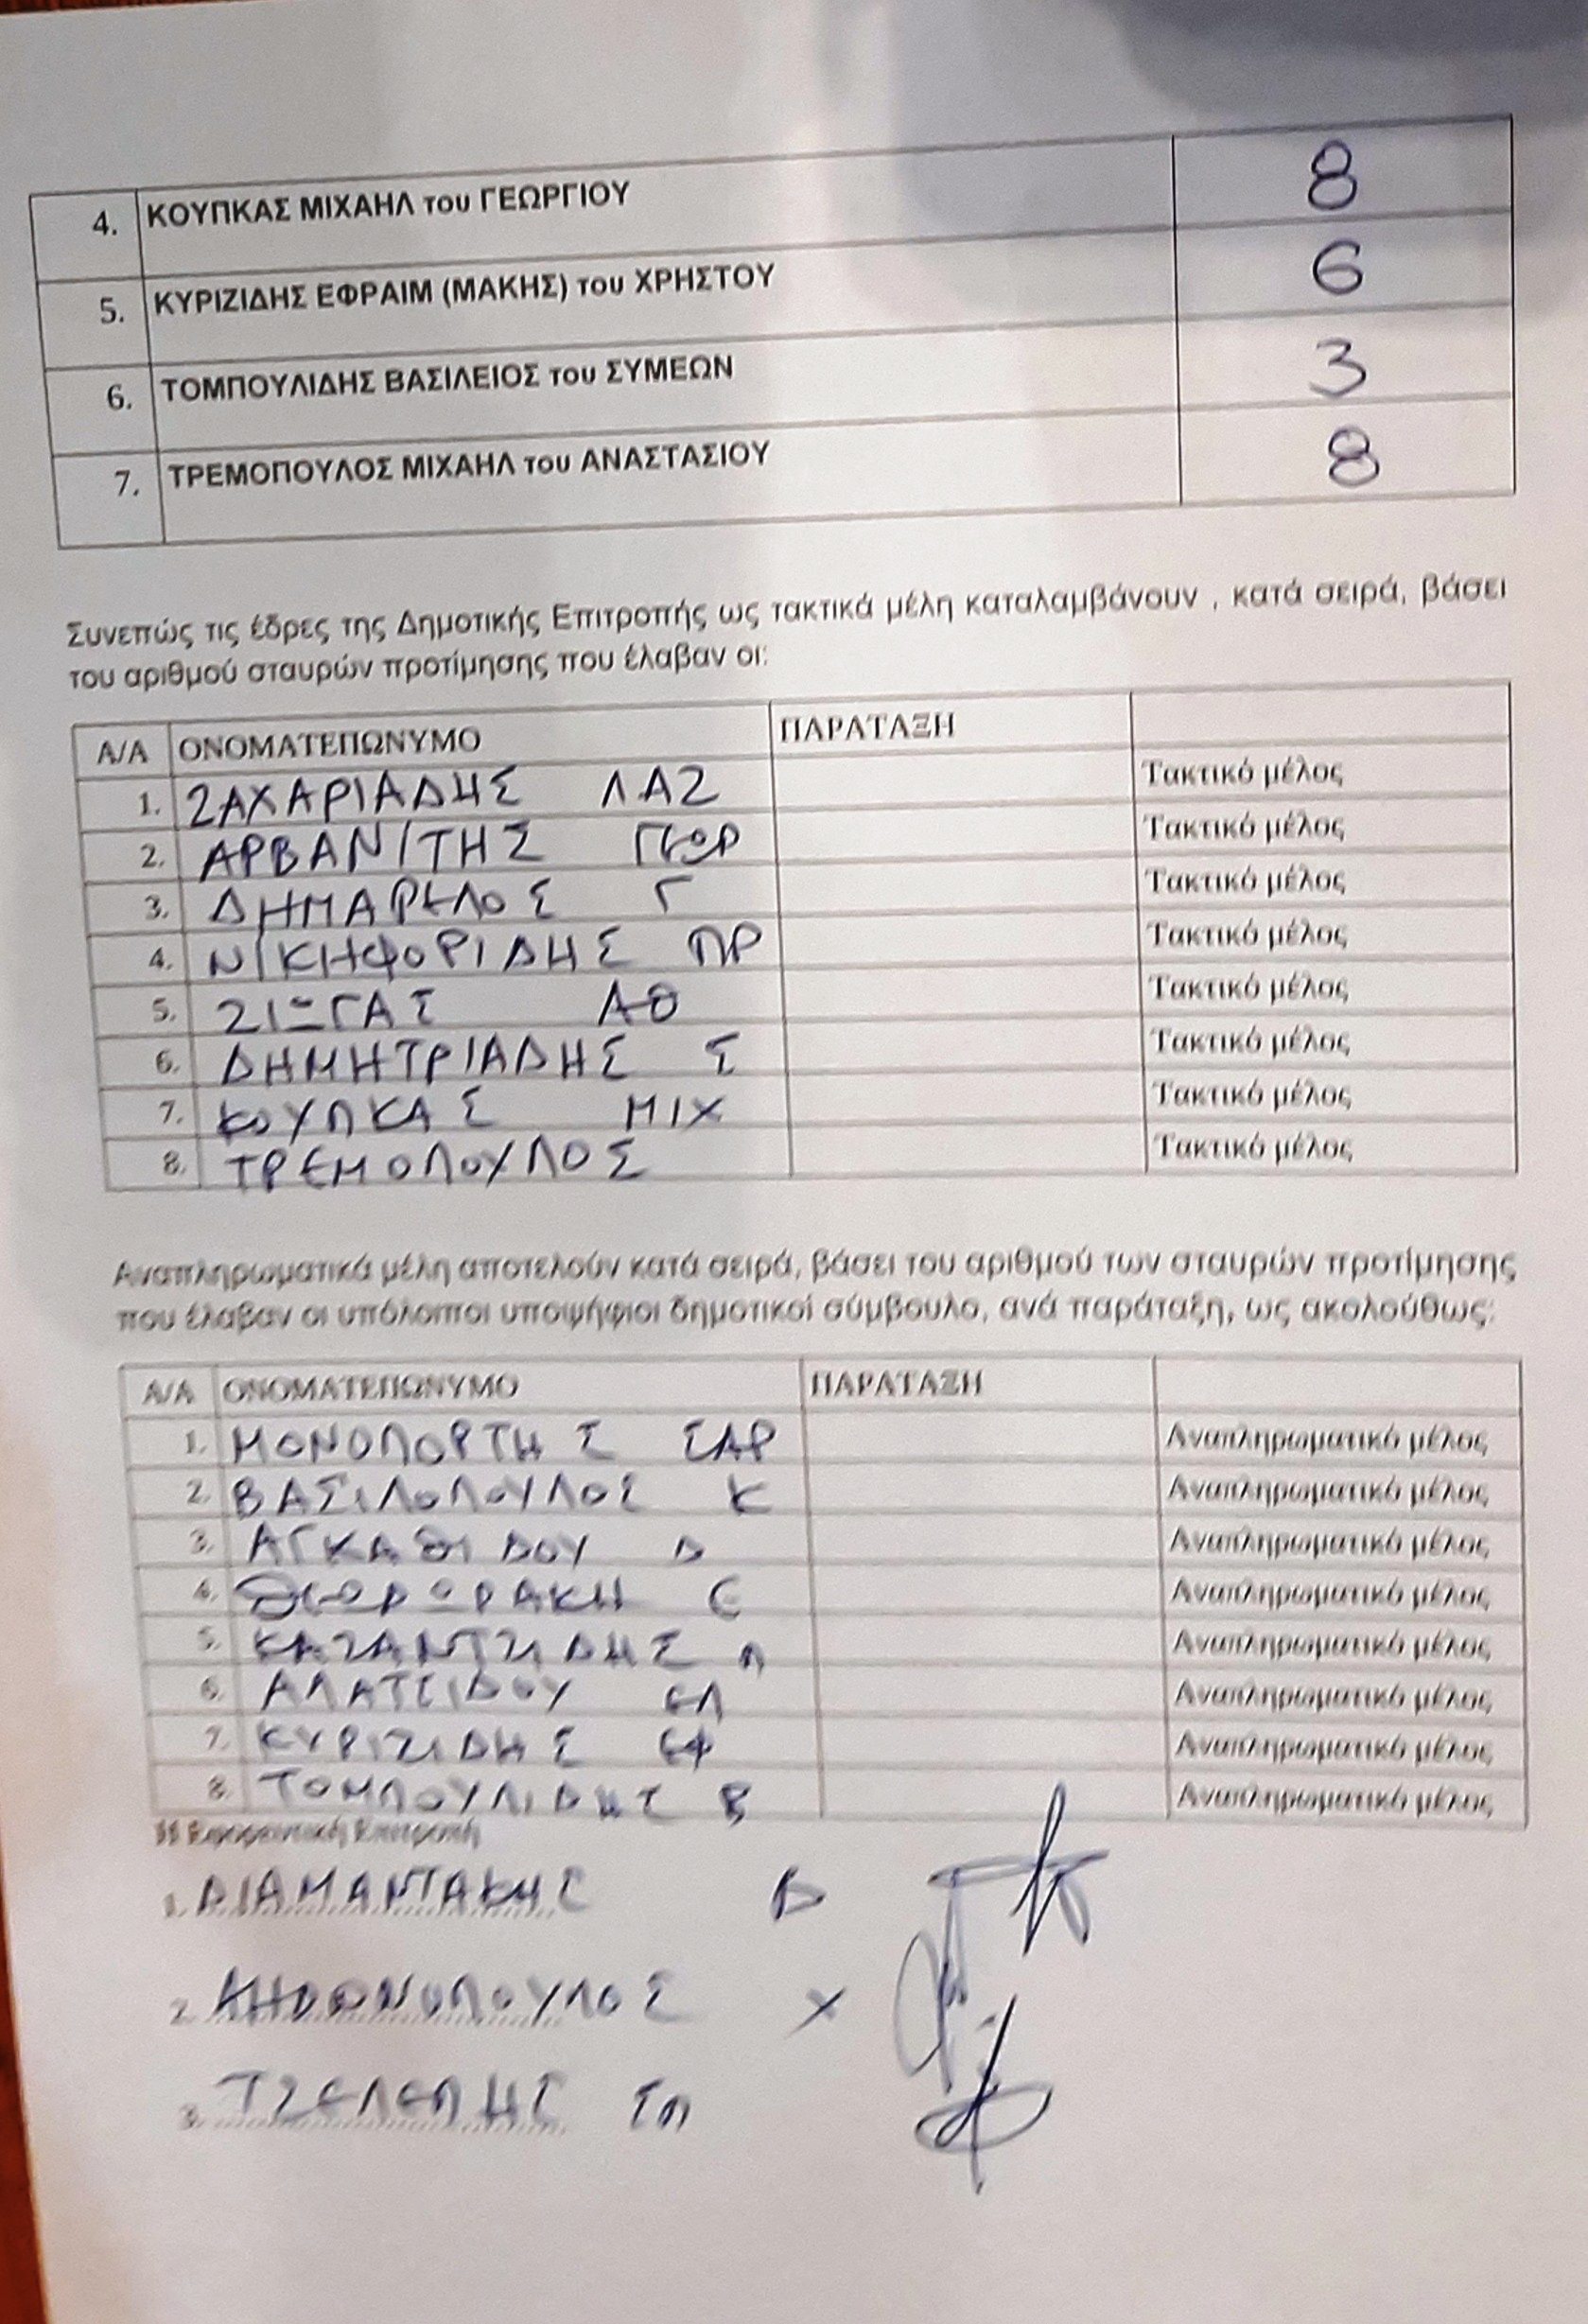 4. ΚΟΥΠΚΑΣ ΜΙΧΑΗΛ του ΓΕΩΡΓΙΟΥ 8
5. ΚΥΡΙΖΙΔΗΣ ΕΦΡΑΙΜ (ΜΑΚΗΣ) του ΧΡΗΣΤΟΥ 6
6. ΤΟΜΠΟΥΛΙΔΗΣ ΒΑΣΙΛΕΙΟΣ του ΣΥΜΕΩΝ 3
7. ΤΡΕΜΟΠΟΥΛΟΣ ΜΙΧΑΗΛ του ΑΝΑΣΤΑΣΙΟΥ 8
Συνεπώς τις έδρες της Δημοτικής Επιτροπής ως τακτικά μέλη καταλαμβάνουν , κατά σειρά, βάσει
του αριθμού σταυρών προτίμησης που έλαβαν οι:
Α/Α ΟΝΟΜΑΤΕΠΩΝΥΜΟ ΠΑΡΑΤΑΞΗ
1. ΖΑΧΑΡΙΑΔΗΣ ΛΑΖ Τακτικό μέλος
2. ΑΡΒΑΝΙΤΗΣ ΓΕΩΡ Τακτικό μέλος
3. ΔΗΜΑΡΕΛΟΣ Γ Τακτικό μέλος
4. ΝΙΚΗΦΟΡΙΔΗΣ ΠΡ Τακτικό μέλος
5. ΖΙΞΓΑΣ ΑΘ Τακτικό μέλος
6. ΔΗΜΗΤΡΙΑΔΗΣ Σ Τακτικό μέλος
7. ΚΟΥΠΚΑΣ ΜΙΧ Τακτικό μέλος
8. ΤΡΕΜΟΠΟΥΛΟΣ Τακτικό μέλος
Αναπληρωματικά μέλη αποτελούν κατά σειρά, βάσει του αριθμού των σταυρών προτίμησης
που έλαβαν οι υπόλοιποι υποψήφιοι δημοτικοί σύμβουλο, ανά παράταξη, ως ακολούθως:
Α/Α ΟΝΟΜΑΤΕΠΩΝΥΜΟ ΠΑΡΑΤΑΞΗ
1. ΜΟΝΟΠΟΡΤΗΣ ΣΑΡ Αναπληρωματικό μέλος
2. ΒΑΣΙΛΟΠΟΥΛΟΣ Κ Αναπληρωματικό μέλος
3. ΑΓΚΑΘΙΔΟΥ Δ Αναπληρωματικό μέλος
4. ΘΕΟΔΩΡΑΚΗ Ε Αναπληρωματικό μέλος
5. ΚΑΖΑΝΤΖΙΔΗΣ Π Αναπληρωματικό μέλος
6. ΑΛΑΤΣΙΔΟΥ ΕΛ Αναπληρωματικό μέλος
7. ΚΥΡΙΖΙΔΗΣ ΕΦ Αναπληρωματικό μέλος
8. ΤΟΜΠΟΥΛΙΔΗΣ Β Αναπληρωματικό μέλος
Η Εφορευτική Επιτροπή
1. ΔΙΑΜΑΝΤΑΚΗΣ Δ
2. Χ
3. ΤΖΕΛΕΠΗΣ ΣΠ